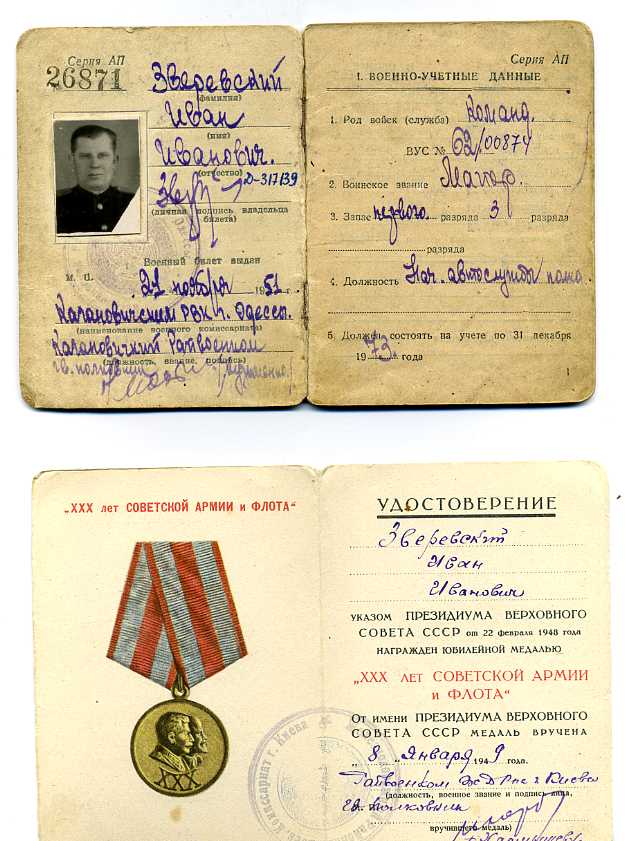 Серия АП
26871
Зверевский
(фамилия)
Иван
(имя)
Иванович.
(отчество)
Д-317139
(личная подпись владельца
билета)
М. П.
Военный билет выдан
21 ноября 1951 г.
Кагановичским РВК г. Одессы.
(наименование военного комиссариата)
Кагановичский Райвоенком
(должность, звание, подпись)
гв. полковник
Серия АП
1. ВОЕННО-УЧЕТНЫЕ ДАННЫЕ
1. Род войск (служба) команд.
ВУС № 62/00874
2. Воинское звание Майор.
3. Запас первого разряда 3 разряда
разряда
4. Должность Нач. автослужбы полка
5. Должен состоять на учете по 31 декабря
1973 года
1
„XXX лет СОВЕТСКОЙ АРМИИ и ФЛОТА“
XXX
УДОСТОВЕРЕНИЕ
Зверевский
Иван
Иванович
УКАЗОМ ПРЕЗИДИУМА ВЕРХОВНОГО
СОВЕТА СССР от 22 февраля 1948 года
НАГРАЖДЕН ЮБИЛЕЙНОЙ МЕДАЛЬЮ
„XXX ЛЕТ СОВЕТСКОЙ АРМИИ
и ФЛОТА“
От имени ПРЕЗИДИУМА ВЕРХОВНОГО
СОВЕТА СССР МЕДАЛЬ ВРУЧЕНА
„8„ Января 1949 года.
Райвоенком ЖД г. Киева
(должность, военное звание и подпись лица,
гв. полковник
вручившего медаль)
Комиссариат г. Киева